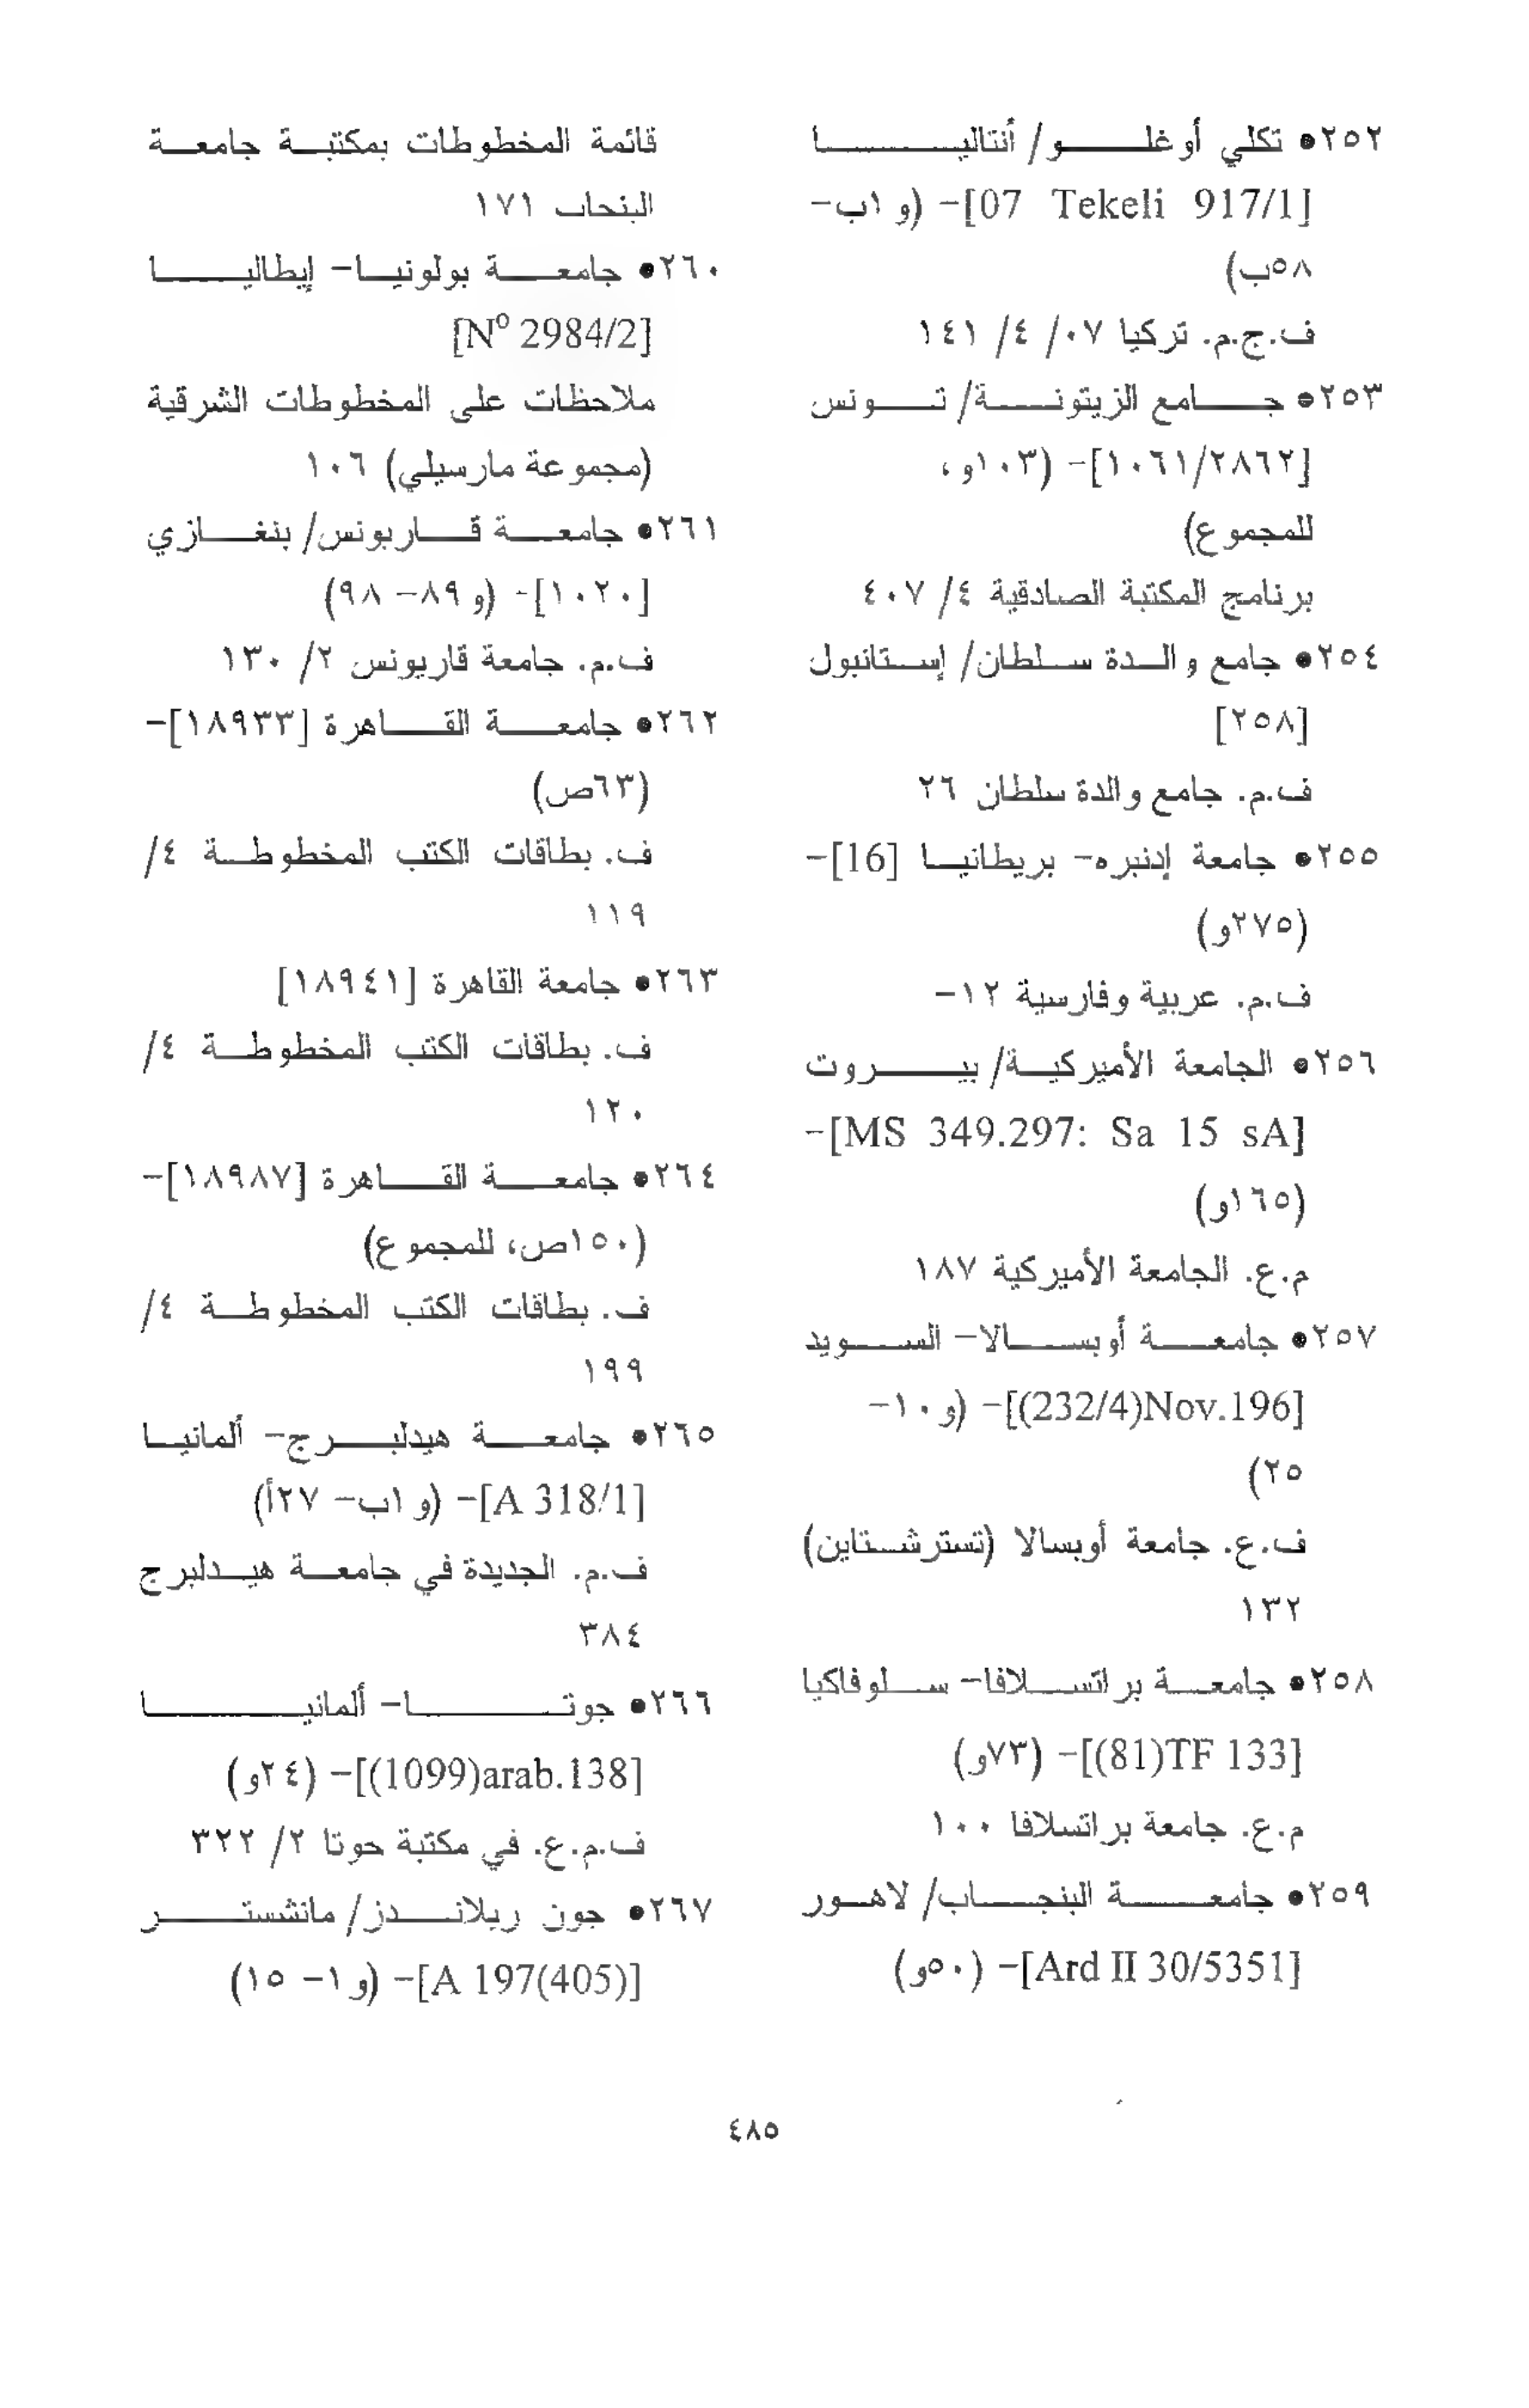 ٢٥٢• تكلي أوغلو/ أنتاليا
[07 Tekeli 917/1]- (و ١ب-
٥٨ب)
ف.ج.م. تركيا ٠٧/ ٤/ ١٤١
٢٥٣• جامع الزيتونة/ تونس
[١٠٦١/٢٨٦٢]- (١٠٣و،
للمجموع)
برنامج المكتبة الصادقية ٤/ ٤٠٧
٢٥٤• جامع والدة سلطان/ إستانبول
[٢٥٨]
ف.م. جامع والدة سلطان ٢٦
٢٥٥• جامعة إدنبره- بريطانيا [16]-
(٢٧٥و)
ف.م. عربية وفارسية ١٢-
٢٥٦• الجامعة الأميركية/ بيروت
[MS 349.297: Sa 15 sA]-
(١٦٥و)
م.ع. الجامعة الأميركية ١٨٧
٢٥٧• جامعة أوبسالا- السويد
[(232/4)Nov.196]- (و١٠-
٢٥)
ف.ع. جامعة أوبسالا (تسترشتاين)
١٣٢
٢٥٨• جامعة براتسلافا- سلوفاكيا
[(81)TF 133]- (٧٣و)
م.ع. جامعة براتسلافا ١٠٠
٢٥٩• جامعة البنجاب/ لاهور
[Ard II 30/5351]- (٥٠و)
قائمة المخطوطات بمكتبة جامعة
البنحاب ١٧١
٢٦٠• جامعة بولونيا- إيطاليا
[Nº 2984/2]
ملاحظات على المخطوطات الشرقية
(مجموعة مارسيلي) ١٠٦
٢٦١• جامعة قاريونس/ بنغازي
[١٠٢٠]- (و ٨٩- ٩٨)
ف.م. جامعة قاريونس ٢/ ١٣٠
٢٦٢• جامعة القاهرة [١٨٩٣٣]-
(٦٣ص)
ف. بطاقات الكتب المخطوطة ٤/
١١٩
٢٦٣• جامعة القاهرة [١٨٩٤١]
ف. بطاقات الكتب المخطوطة ٤/
١٢٠
٢٦٤• جامعة القاهرة [١٨٩٨٧]-
(١٥٠ص، للمجموع)
ف. بطاقات الكتب المخطوطة ٤/
١٩٩
٢٦٥• جامعة هيدلبرج- ألمانيا
[A 318/1]- (و ١ب- ٢٧أ)
ف.م. الجديدة في جامعة هيدلبرج
٣٨٤
٢٦٦• جوتا- ألمانيا
[(1099)arab.138]- (٢٤و)
ف.م.ع. في مكتبة حوتا ٢/ ٣٢٢
٢٦٧• جون ريلاندز/ مانشستر
[A 197(405)]- (و ١- ١٥)
٤٨٥